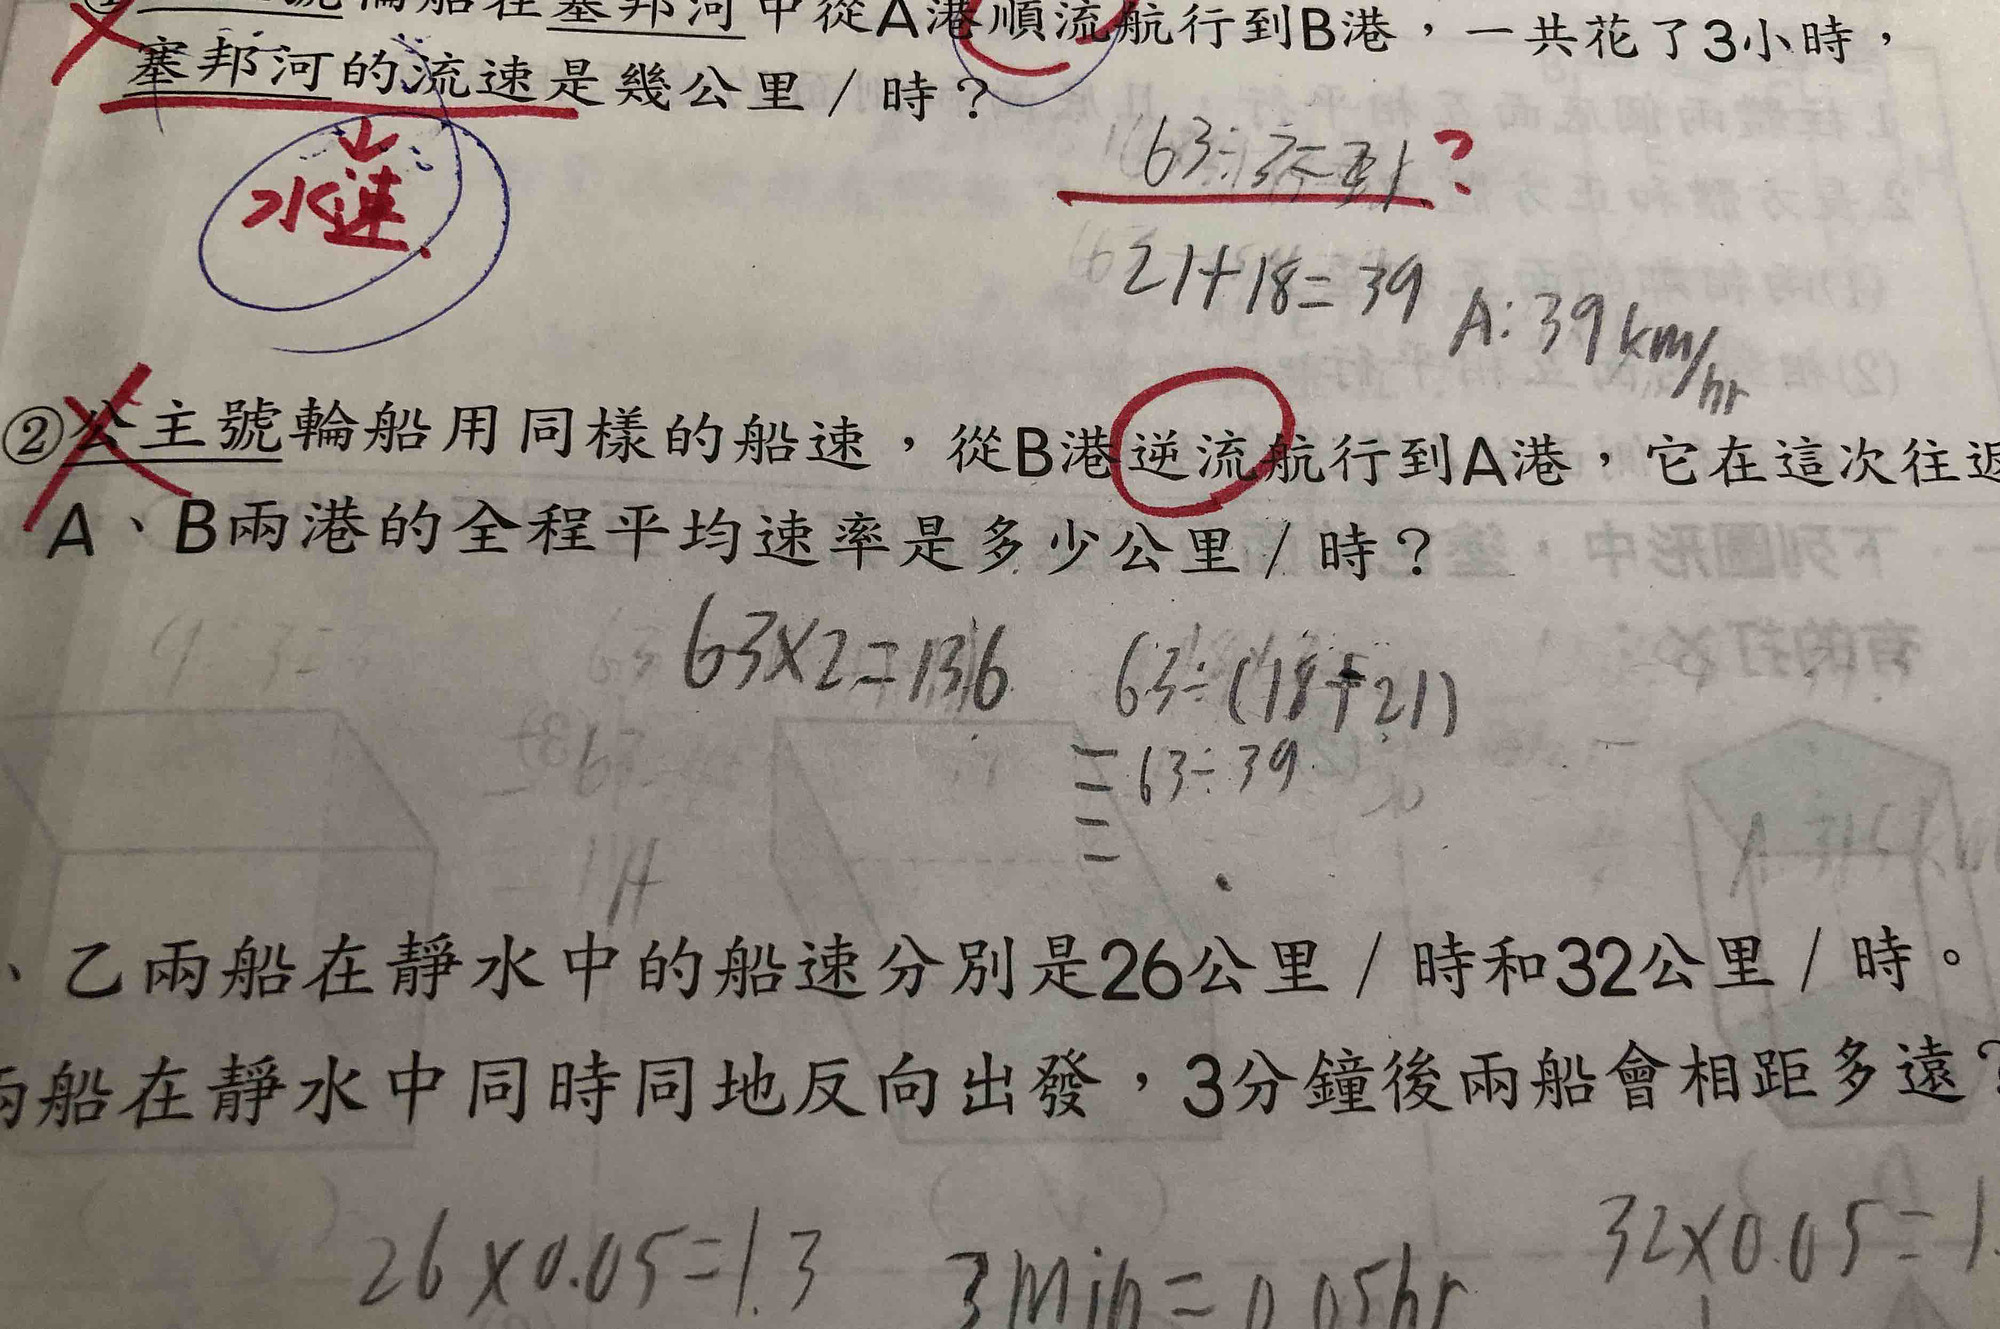 輪船在塞邦河中從A港順流航行到B港，一共花了3小時，
塞邦河的流速是幾公里/時？
水速
63÷3=21?
21+18=39
A:39km/hr
②公主號輪船用同樣的船速，從B港逆流航行到A港，它在這次往返
A、B兩港的全程平均速率是多少公里/時？
63×2=136
63÷(18+21)
=63÷39
=
、乙兩船在靜水中的船速分別是26公里/時和32公里/時。
兩船在靜水中同時同地反向出發，3分鐘後兩船會相距多遠？
26×0.05=1.3
3min=0.05hr
32×0.05=1.